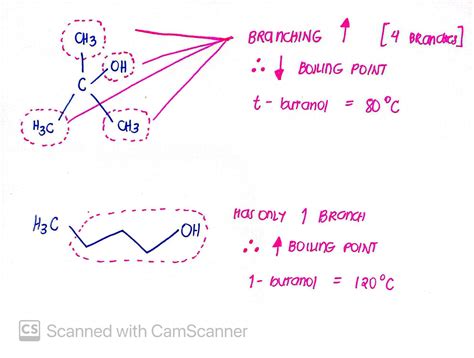 CH3
OH
C
H3C
CH3
BRANCHING ↑ [4 BRANCHES]
∴ ↓ BOILING POINT
t - butanol = 80°C
H3C
OH
HAS ONLY 1 BRANCH
∴ ↑ BOILING POINT
1- butanol = 120°C
CS Scanned with CamScanner